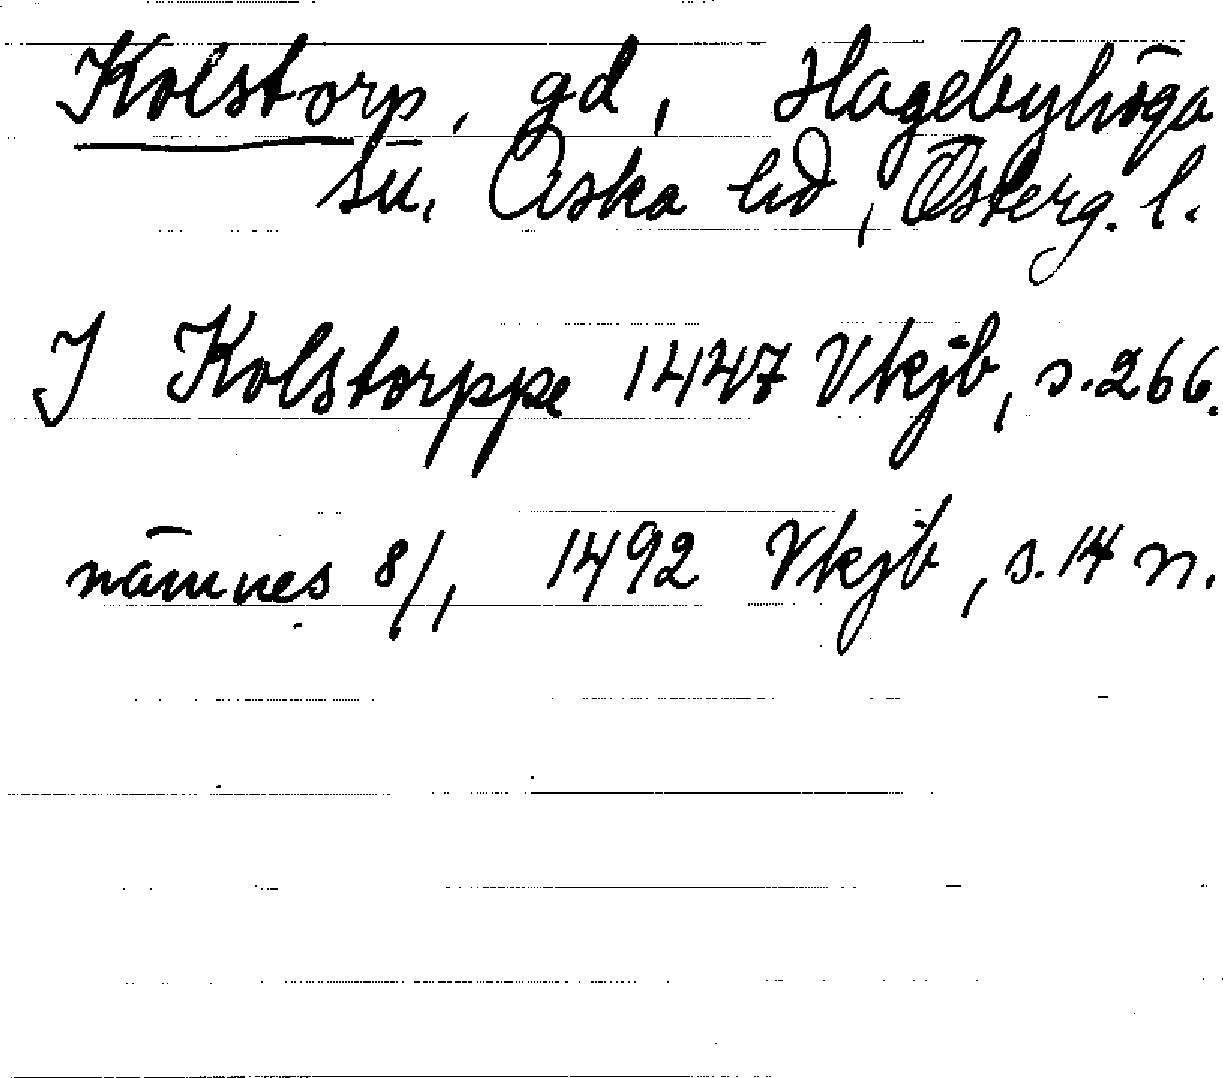 Kolstorp, gd, Hagebyhöga
sn. Aska hd, Österg. l.
J Kolstorppe 1447 Vkjb, s. 266.
nämnes 8/1 1492 Vkjb, s. 14 n.